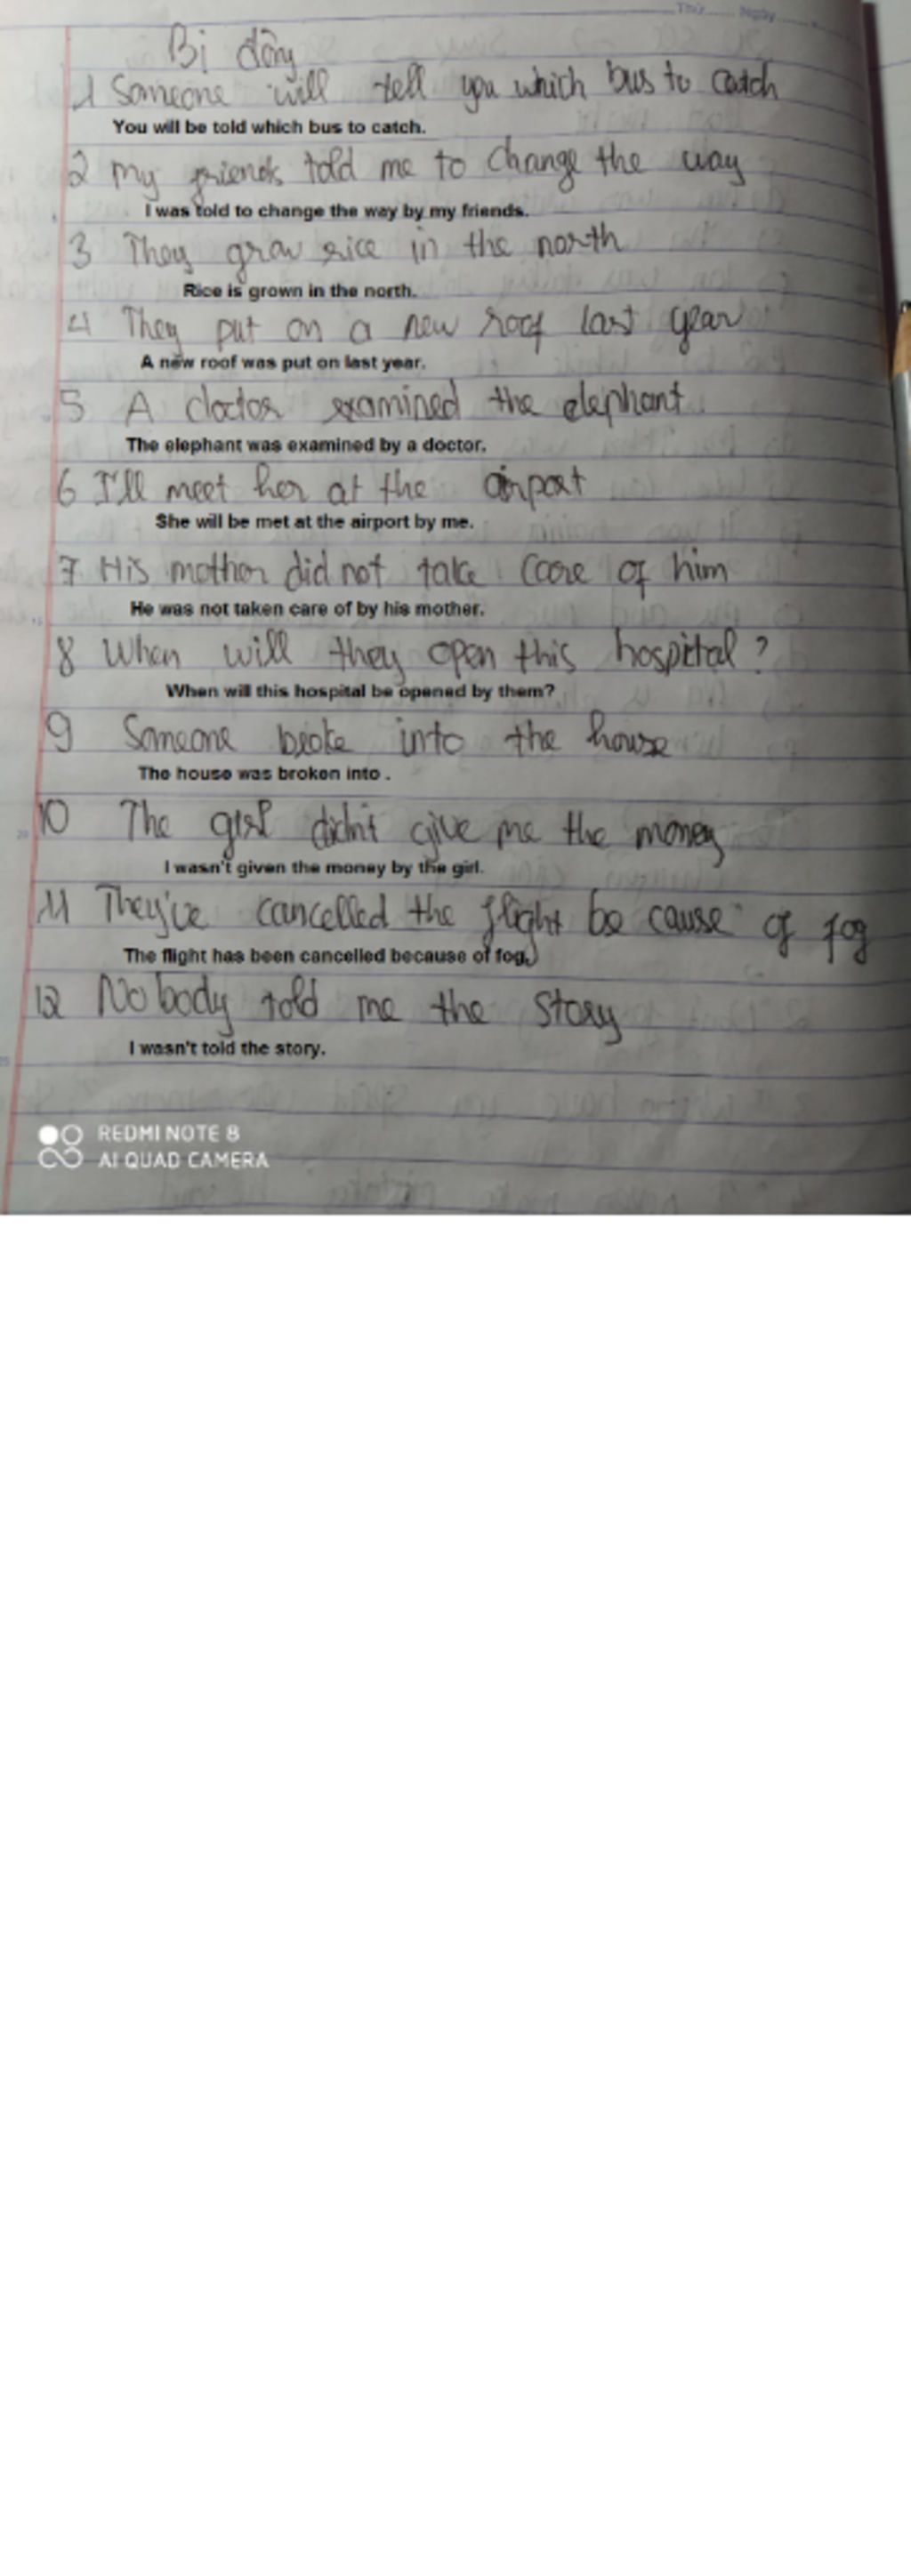 Thứ ..... Ngày .......
Bị động
1 Someone will tell you which bus to catch
You will be told which bus to catch.
2 My friends told me to change the way
I was told to change the way by my friends.
3 They grow rice in the north
Rice is grown in the north.
4 They put on a new roof last year
A new roof was put on last year.
5 A doctor examined the elephant
The elephant was examined by a doctor.
6 I'll meet her at the airport
She will be met at the airport by me.
7 His mother did not take care of him
He was not taken care of by his mother.
8 When will they open this hospital ?
When will this hospital be opened by them?
9 Someone broke into the house
The house was broken into .
10 The girl didn't give me the money
I wasn't given the money by the girl.
11 They've cancelled the flight be cause of fog
The flight has been cancelled because of fog.
12 No body told me the story
I wasn't told the story.
REDMI NOTE 8
AI QUAD CAMERA